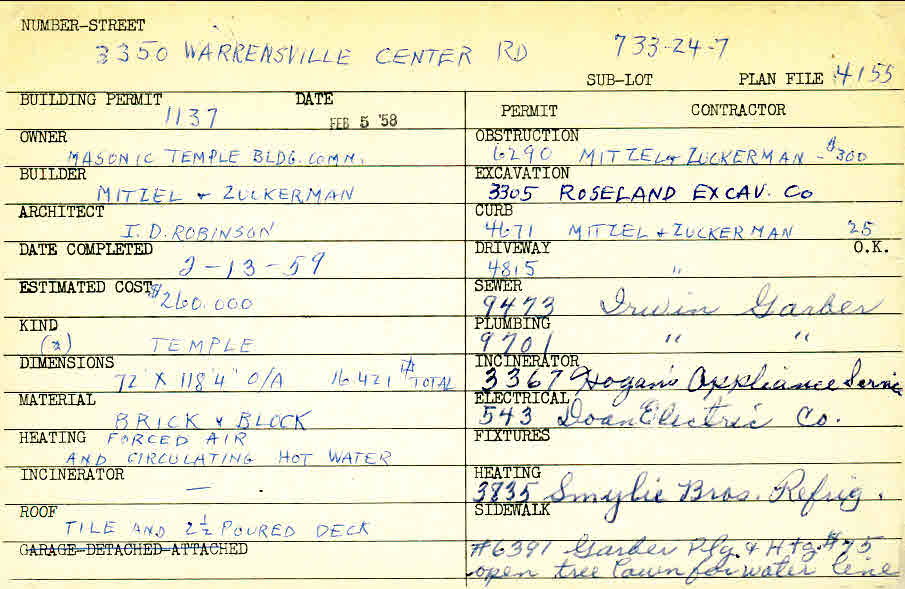 NUMBER-STREET
3350 WARRENSVILLE CENTER RD 733-24-7
SUB-LOT PLAN FILE 4155
BUILDING PERMIT DATE
1137 FEB 5 '58
OWNER
MASONIC TEMPLE BLDG. COMM.
BUILDER
MITZEL & ZUCKERMAN
ARCHITECT
I. D. ROBINSON
DATE COMPLETED
2-13-59
ESTIMATED COST $260.000
KIND
(*) TEMPLE
DIMENSIONS
72' X 118'4" O/A 16421 # TOTAL
MATERIAL
BRICK & BLOCK
HEATING FORCED AIR
AND CIRCULATING HOT WATER
INCINERATOR
—
ROOF
TILE AND 2½ POURED DECK
GARAGE-DETACHED-ATTACHED
PERMIT CONTRACTOR
OBSTRUCTION
6290 MITZEL & ZUCKERMAN - $300
EXCAVATION
3305 ROSELAND EXCAV. CO
CURB
4671 MITZEL & ZUCKERMAN 25
DRIVEWAY O.K.
4815 "
SEWER
9473 Irwin Garber
PLUMBING
9701 " "
INCINERATOR
3367 Hogan's Appliance Servic
ELECTRICAL
543 Doan Electric Co.
FIXTURES
HEATING
3835 Smylie Bros. Refrig.
SIDEWALK
#6391 Garber Plg. & Htg. $75
open tree lawn for water line